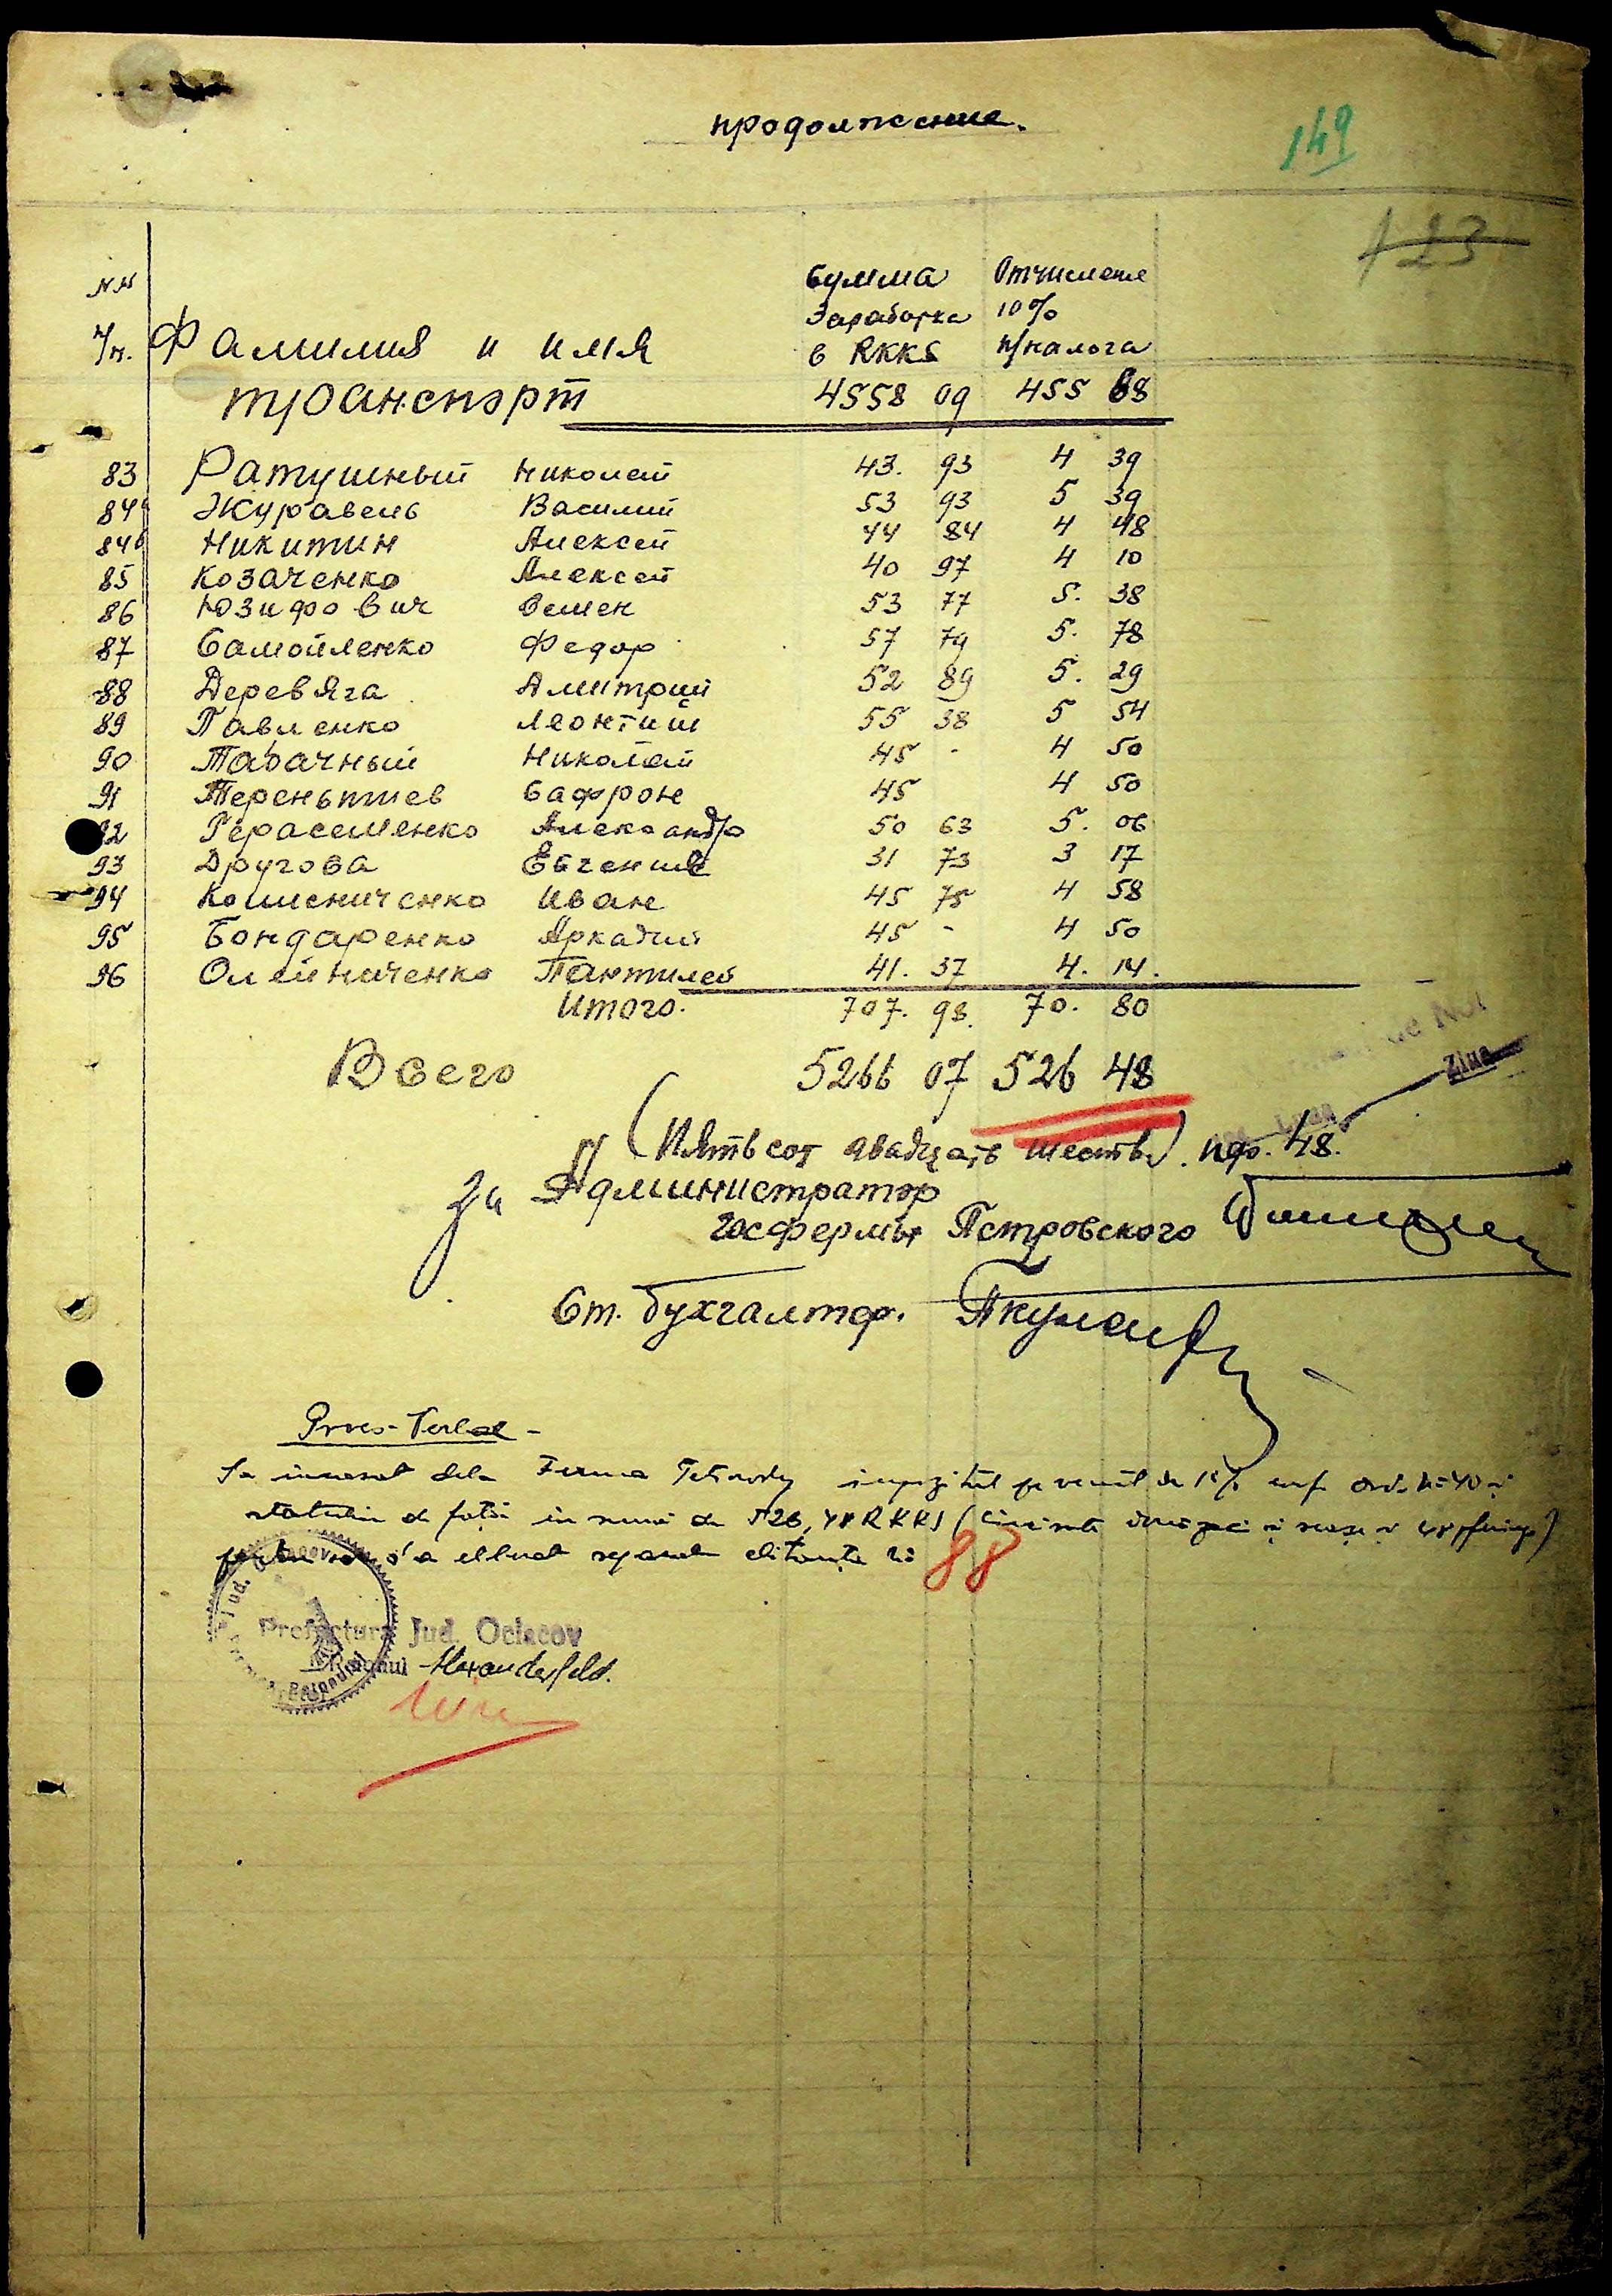 продолжение.
149
123
NN
п/п.
Фамилия и имя
Сумма
Заработка
в RKKS
Отчисление
10%
п/налога
транспорт 4558 09 455 68
83 Ратушный Николай 43. 93 4 39
84а Журавель Василий 53 93 5 39
84б Никитин Алексей 44 84 4 48
85 Козаченко Алексей 40 97 4 10
86 Юзифович Семен 53 77 5. 38
87 Самойленко Федор 57 79 5. 78
88 Деревяга Дмитрий 52 89 5. 29
89 Павленко Леонтий 55 38 5 54
90 Табачный Николай 45 - 4 50
91 Тереньтиев Сафрон 45 4 50
92 Герасеменко Александр 50 63 5. 06
93 Другова Евгения 31 73 3 17
94 Колисниченко Иван 45 75 4 58
95 Бондаренко Аркадий 45 - 4 50
96 Олейниченко Пантилей 41. 37 4. 14.
Итого. 707. 98. 70. 80
Всего 5266 07 526 48
(Пятьсот двадцать шесть). пф. 48.
За Администратор
госфермы Петровского
Ст. бухгалтер.
Proces-Verbal -
S'a incasat dela Ferma Petrovsky impozitul pe venit de 10% conf. Ord. No 40 și
statului de față în sumă de 526,48 RKKS (Cinci sute douăzeci și șase și 48 pfenigi)
pentru care s'a eliberat separat chitanța No 88
Prefectura Jud. Oclacov
Raionul Alexanderfeld.
Ziua